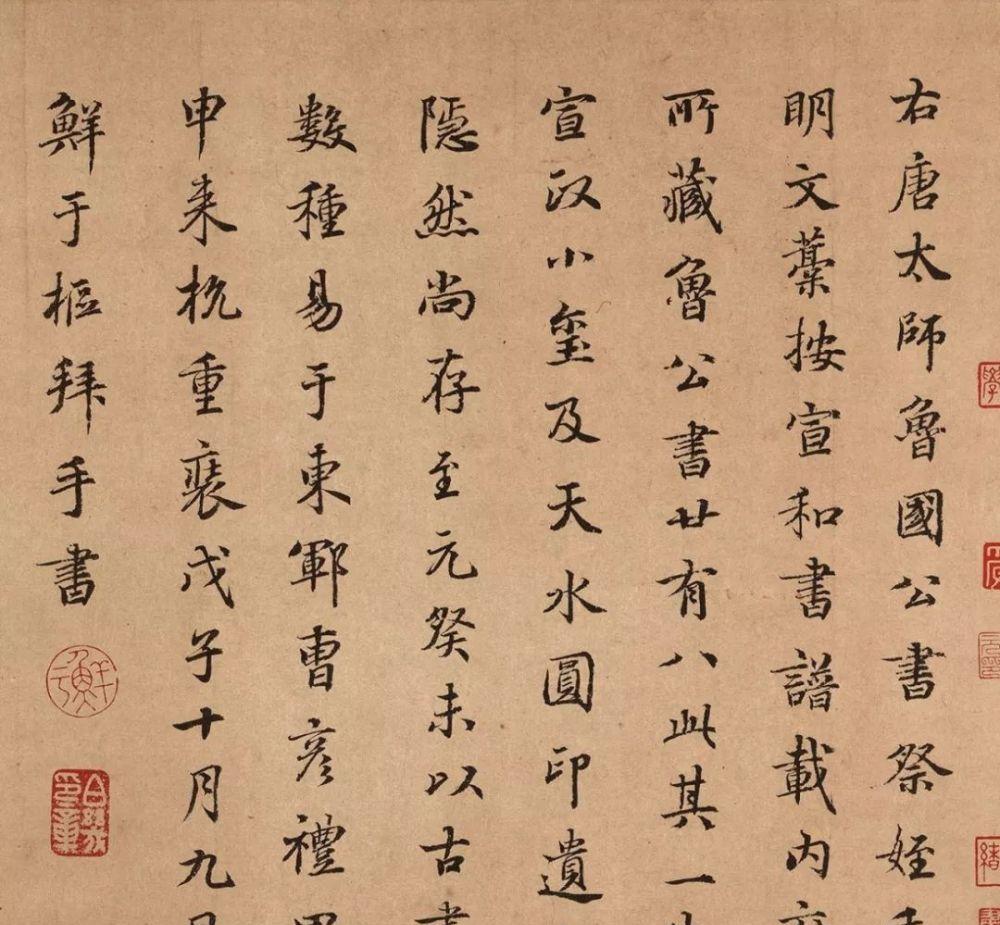 右唐太師魯國公書祭姪
明文藁按宣和書譜載内
所藏魯公書廿有八此其一
宣政小璽及天水圓印遺
隱然尚存至元癸未以古
數種易于東鄆曹彦禮
申来杭重裝戊子十月九
鮮于樞拜手書
鮮于